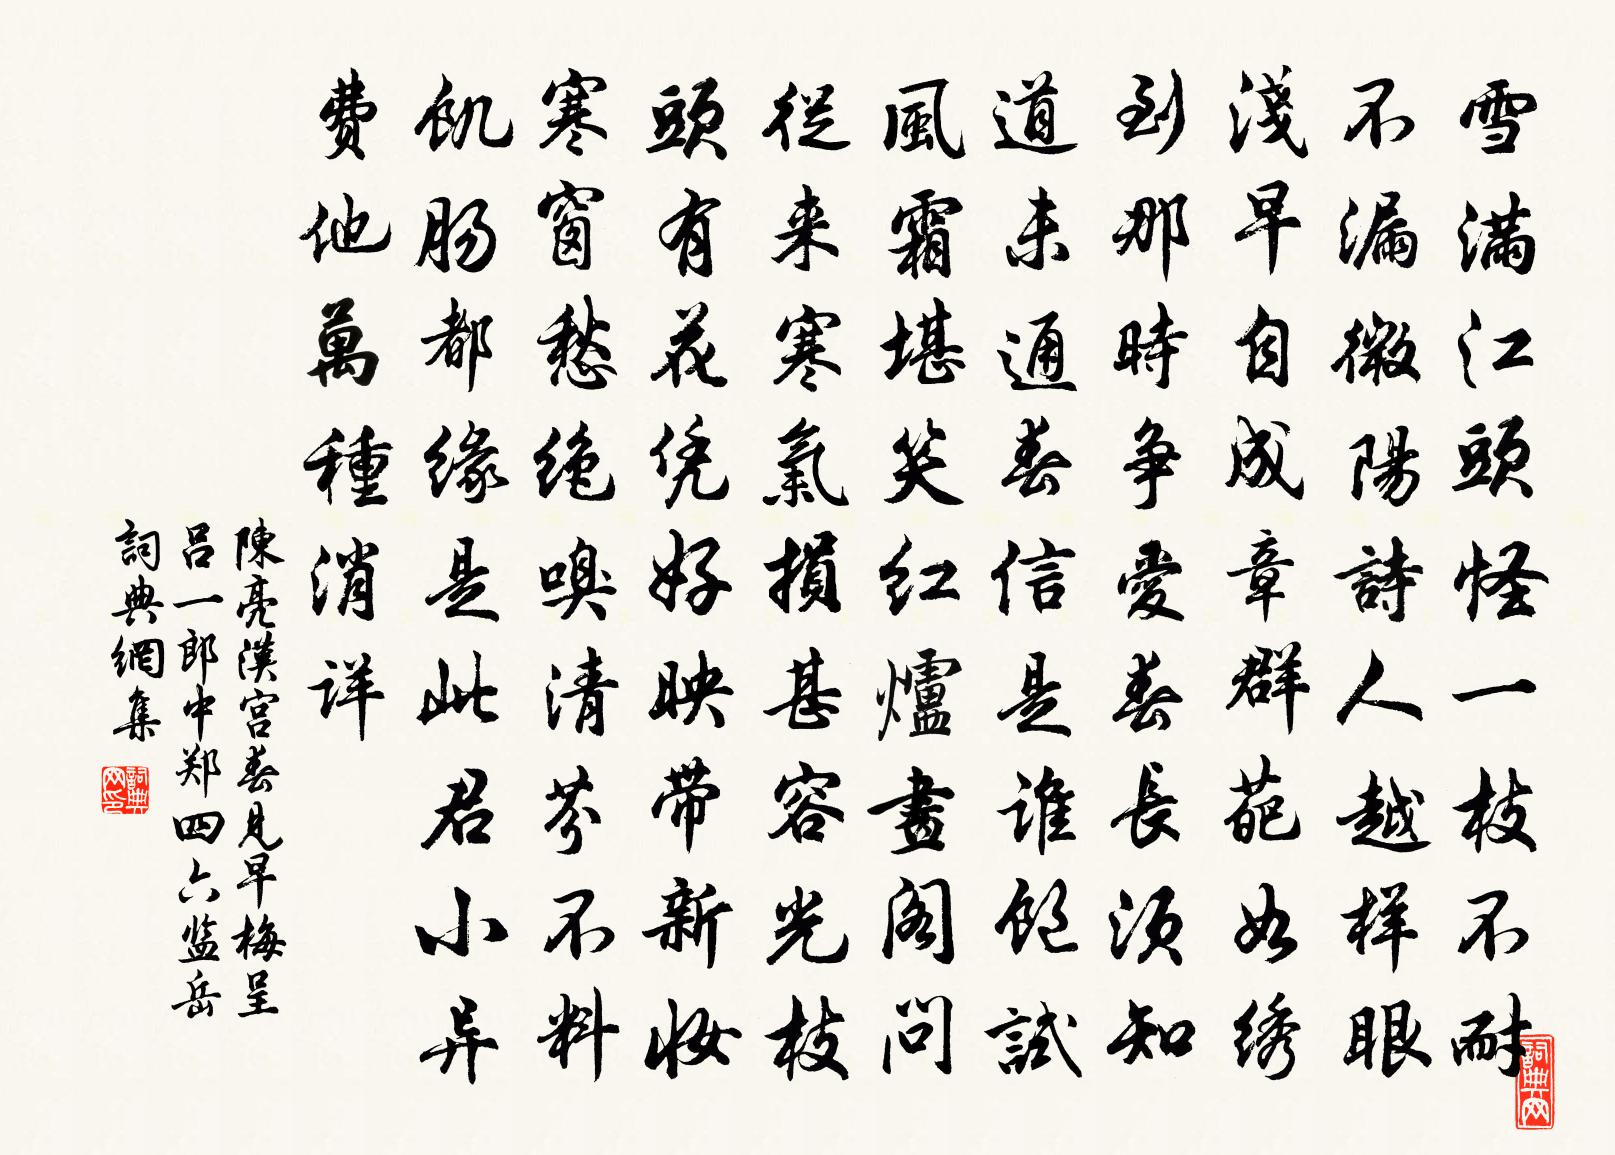 雪滿江頭怪一枝不耐
不漏微陽詩人越樣眼
淺早自成章群葩如绣
到那時争愛春長须知
道未通春信是谁飽試
風霜堪笑红爐畫阁问
從来寒氣損甚容光枝
頭有花凭好映带新妆
寒窗愁绝嗅清芬不料
飢肠都缘是此君小异
費他萬種消详
陳亮漢宫春见早梅呈
吕一郎中郑四六监岳
詞典網集
詞典网